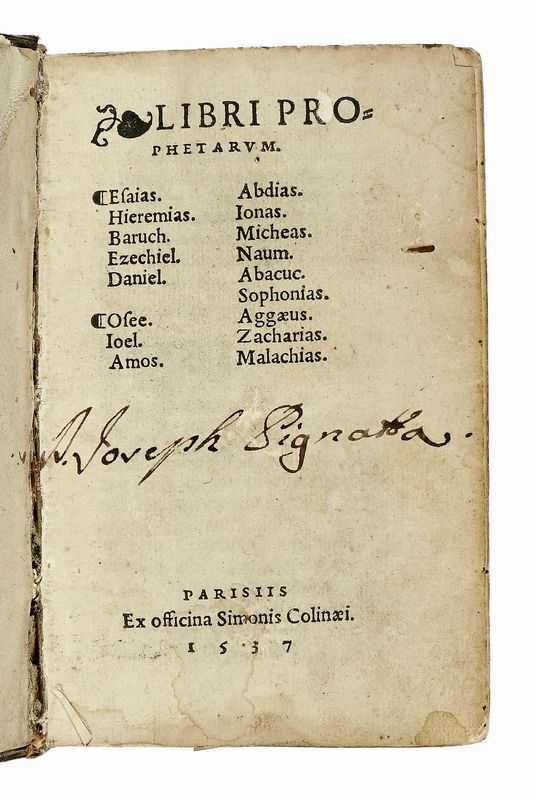 LIBRI PRO=
PHETARVM.
¶Eſaias.
Hieremias.
Baruch.
Ezechiel.
Daniel.
¶Oſee.
Ioel.
Amos.
Abdias.
Ionas.
Micheas.
Naum.
Abacuc.
Sophonias.
Aggæus.
Zacharias.
Malachias.
Joseph Pignatta.
PARISIIS
Ex officina Simonis Colinæi.
1537